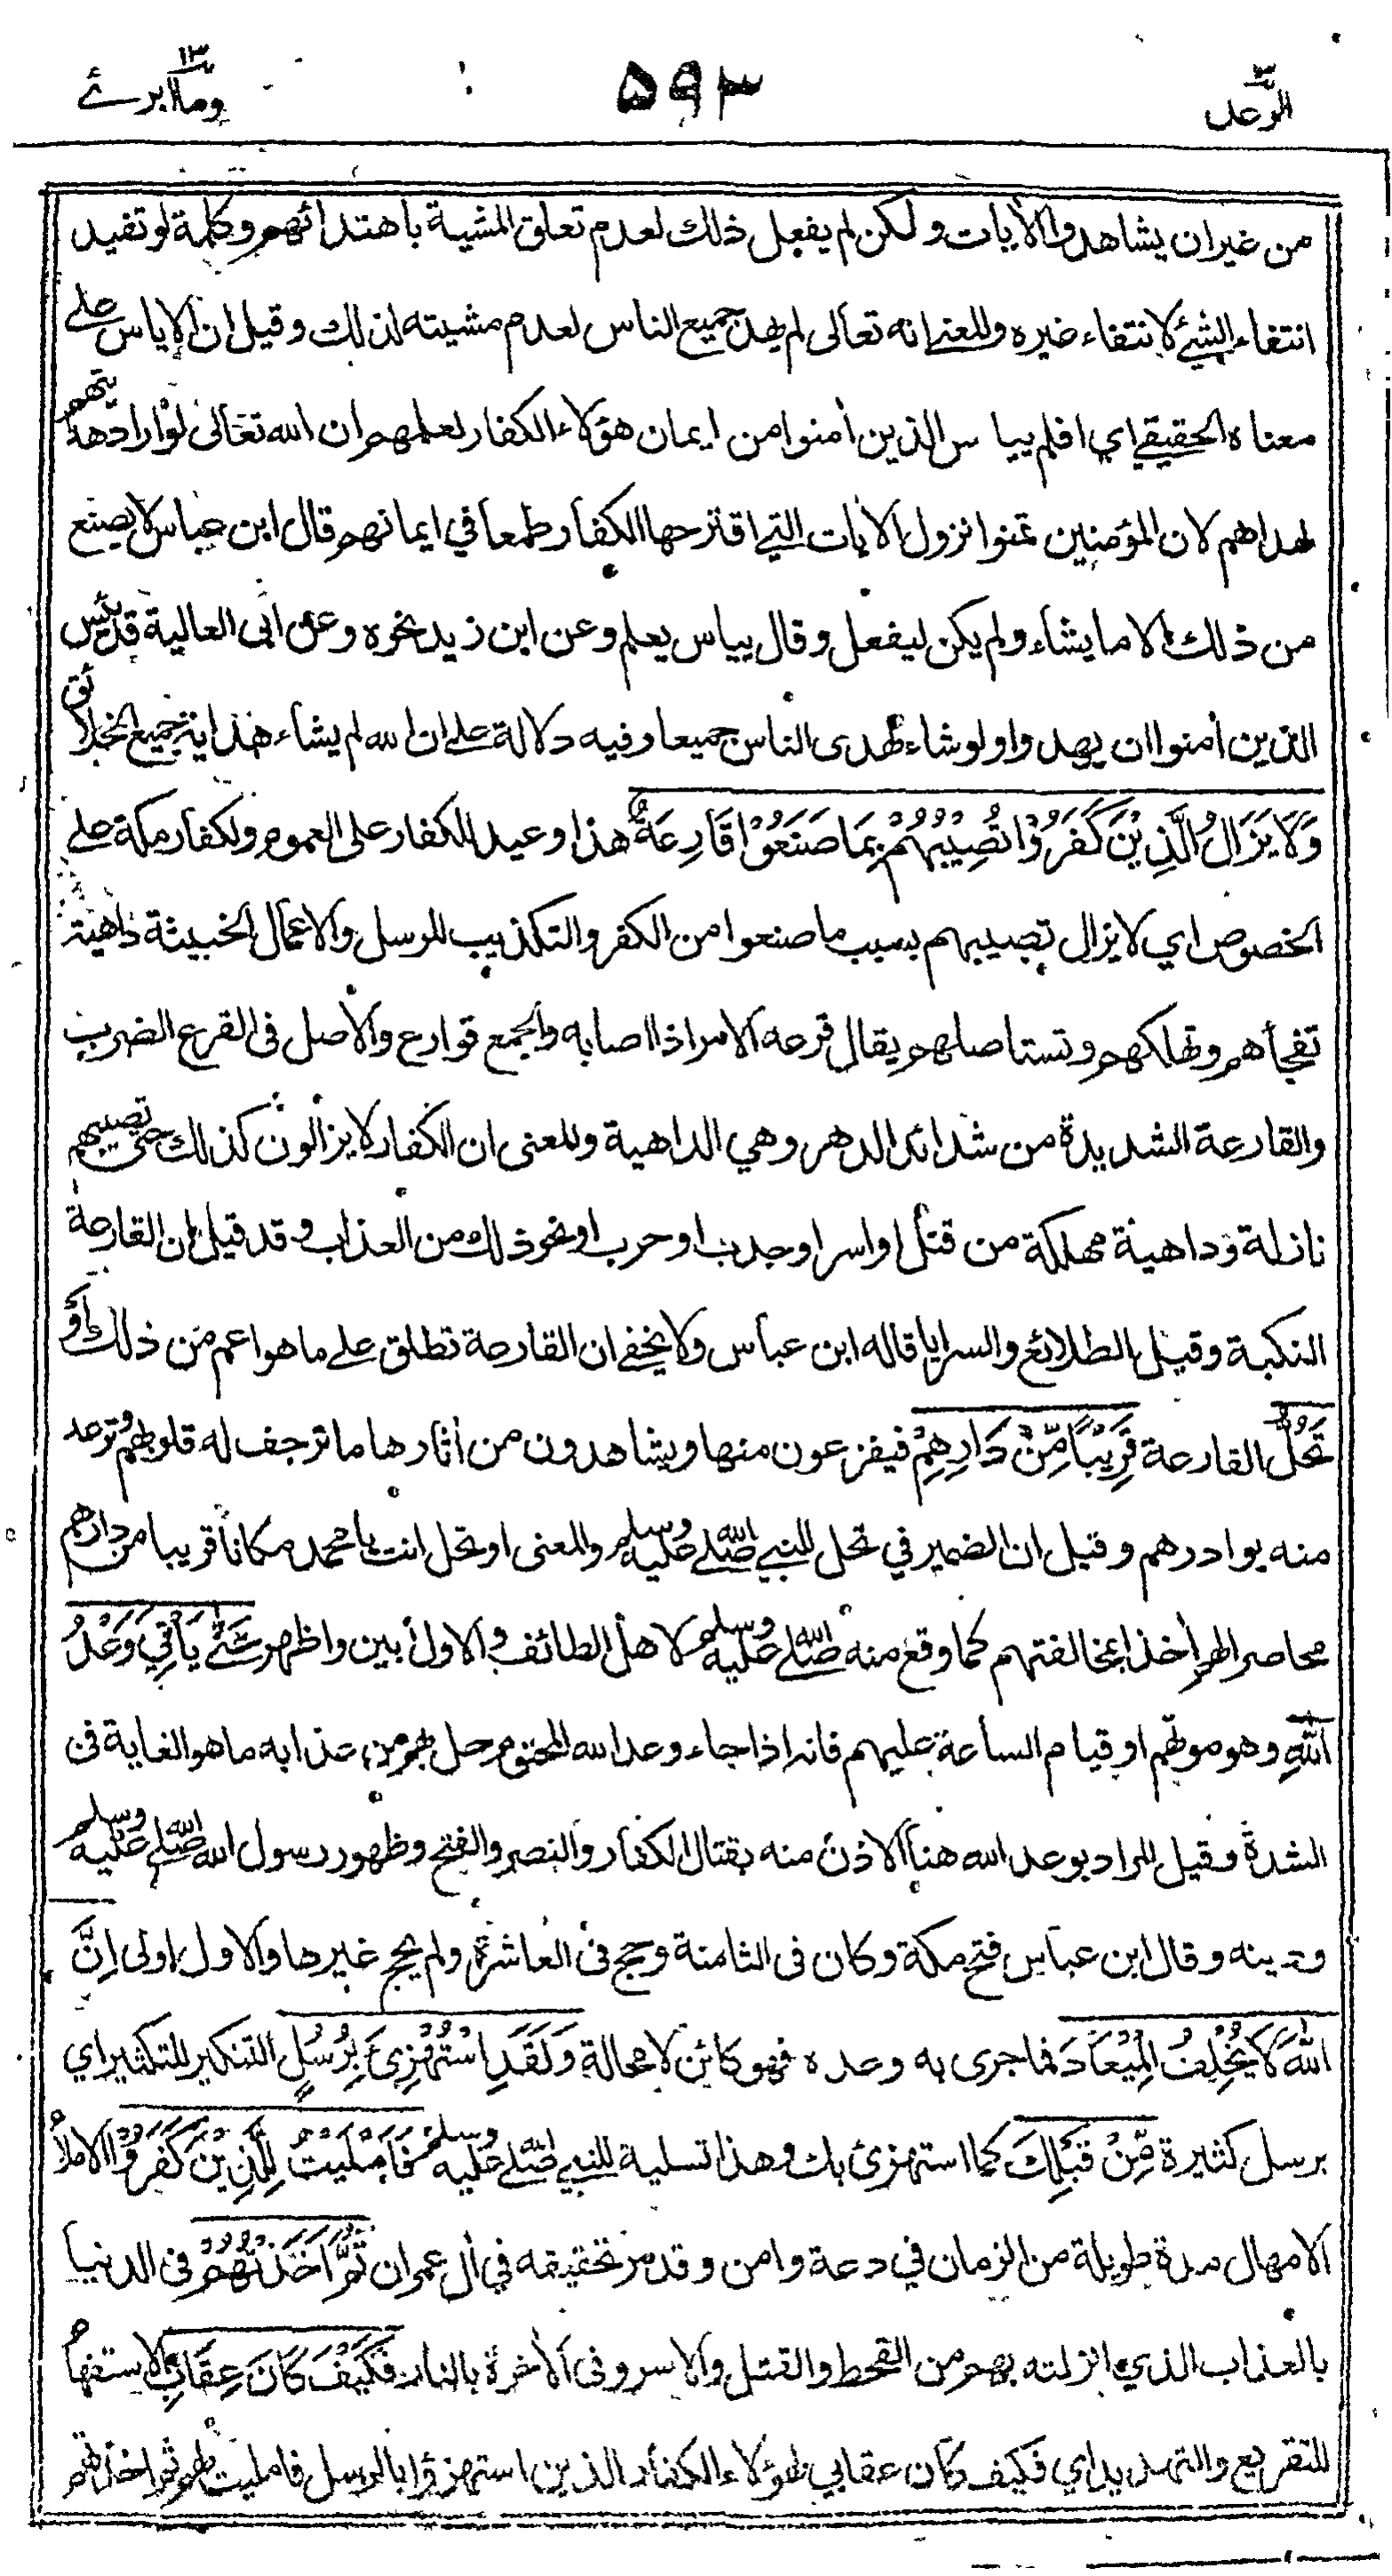 الرعد ١٣
٥٩٣
وما ابرئ ١٣
من غير ان يشاهدوا الأيات ولكن لم يفعل ذلك لعدم تعلق المشية باهتدائهم وكلمة لو تفيد
انتفاء الشيء لانتفاء غيره والمعنى انه تعالى لم يهد جميع الناس لعدم مشيته لذلك وقيل ان الاياس على
معناه الحقيقي اي افلم ييأس الذين أمنوا من ايمان هؤلاء الكفار لعلمهم ان الله تعالى لو اراد هدايتهم
لهداهم لان المؤمنين تمنوا نزول الأيات التي اقترحها الكفار طمعا في ايمانهم قال ابن عباس لا يصنع
من ذلك الا ما يشاء ولم يكن ليفعل وقال ييأس يعلم وعن ابن زيد نحوه وعن ابى العالية قد يئس
الذين أمنوا ان يهدوا ولو شاء لهدى الناس جميعا وفيه دلالة على ان الله لم يشاء هداية جميع الخلائق
وَلَا يَزَالُ الَّذِيْنَ كَفَرُوْا تُصِيْبُهُمْ بِمَا صَنَعُوْا قَارِعَةٌ هذا وعيد للكفار على العموم ولكفار مكة على
الخصوص اي لا يزال تصيبهم بسبب ما صنعوا من الكفر والتكذيب للرسل والاعمال الخبيثة داهية
تفجأهم وتهلكهم وتستاصلهم يقال قرعه الامر اذا اصابه والجمع قوارع والأصل فى القرع الضرب
والقارعة الشديدة من شدائد الدهر وهي الداهية والمعنى ان الكفار لا يزالون كذلك حتى تصيبهم
نازلة وداهية مهلكة من قتل او اسر او جدب او حرب او نحو ذلك من العذاب وقد قيل ان القارعة
النكبة وقيل الطلائع والسرايا قاله ابن عباس ولا يخفى ان القارعة تطلق على ما هو اعم من ذلك أَوْ
تَحُلُّ القارعة قَرِيْبًا مِّنْ دَارِهِمْ فيفزعون منها ويشاهدون من أثارها ما ترجف له قلوبهم وترعد
منه بوادرهم وقيل ان الضمير في تحل للنبي صلى الله عليه وسلم والمعنى او تحل انت يا محمد مكانا قريبا من دارهم
محاصرا لهم أخذا بمخالفتهم كما وقع منه صلى الله عليه وسلم لاهل الطائف والاول أبين واظهر حَتّٰى يَأْتِيَ وَعْدُ
اللّٰهِ وهو موتهم او قيام الساعة عليهم فانه اذا جاء وعد الله المحتوم حل بهم من عذابه ما هو الغاية فى
الشدة وقيل المراد بوعد الله هنا الاذن منه بقتال الكفار والنصر والفتح وظهور رسول الله صلى الله عليه وسلم
ودينه وقال ابن عباس فتح مكة وكان فى الثامنة وحج فى العاشرة ولم يحج غيرها والاول اولى اِنَّ
اللّٰهَ لَا يُخْلِفُ الْمِيْعَادَ فما جرى به وعده فهو كائن لا محالة وَلَقَدِ اسْتُهْزِئَ بِرُسُلٍ التنكير للتكثير اي
برسل كثيرة مِّنْ قَبْلِكَ كما استهزئ بك وهذا تسلية للنبي صلى الله عليه وسلم فَاَمْلَيْتُ لِلَّذِيْنَ كَفَرُوْا الاملاء
الامهال مدة طويلة من الزمان في دعة وامن وقد مر تحقيقه في أل عمران ثُمَّ اَخَذْتُهُمْ فى الدنيا
بالعذاب الذي انزلته بهم من القحط والقتل والاسر وفى الأخرة بالنار فَكَيْفَ كَانَ عِقَابِ الاستفهام
للتقريع والتهديد اي فكيف كان عقابي لهؤلاء الكفار الذين استهزؤا بالرسل فامليت لهم ثم اخذتهم